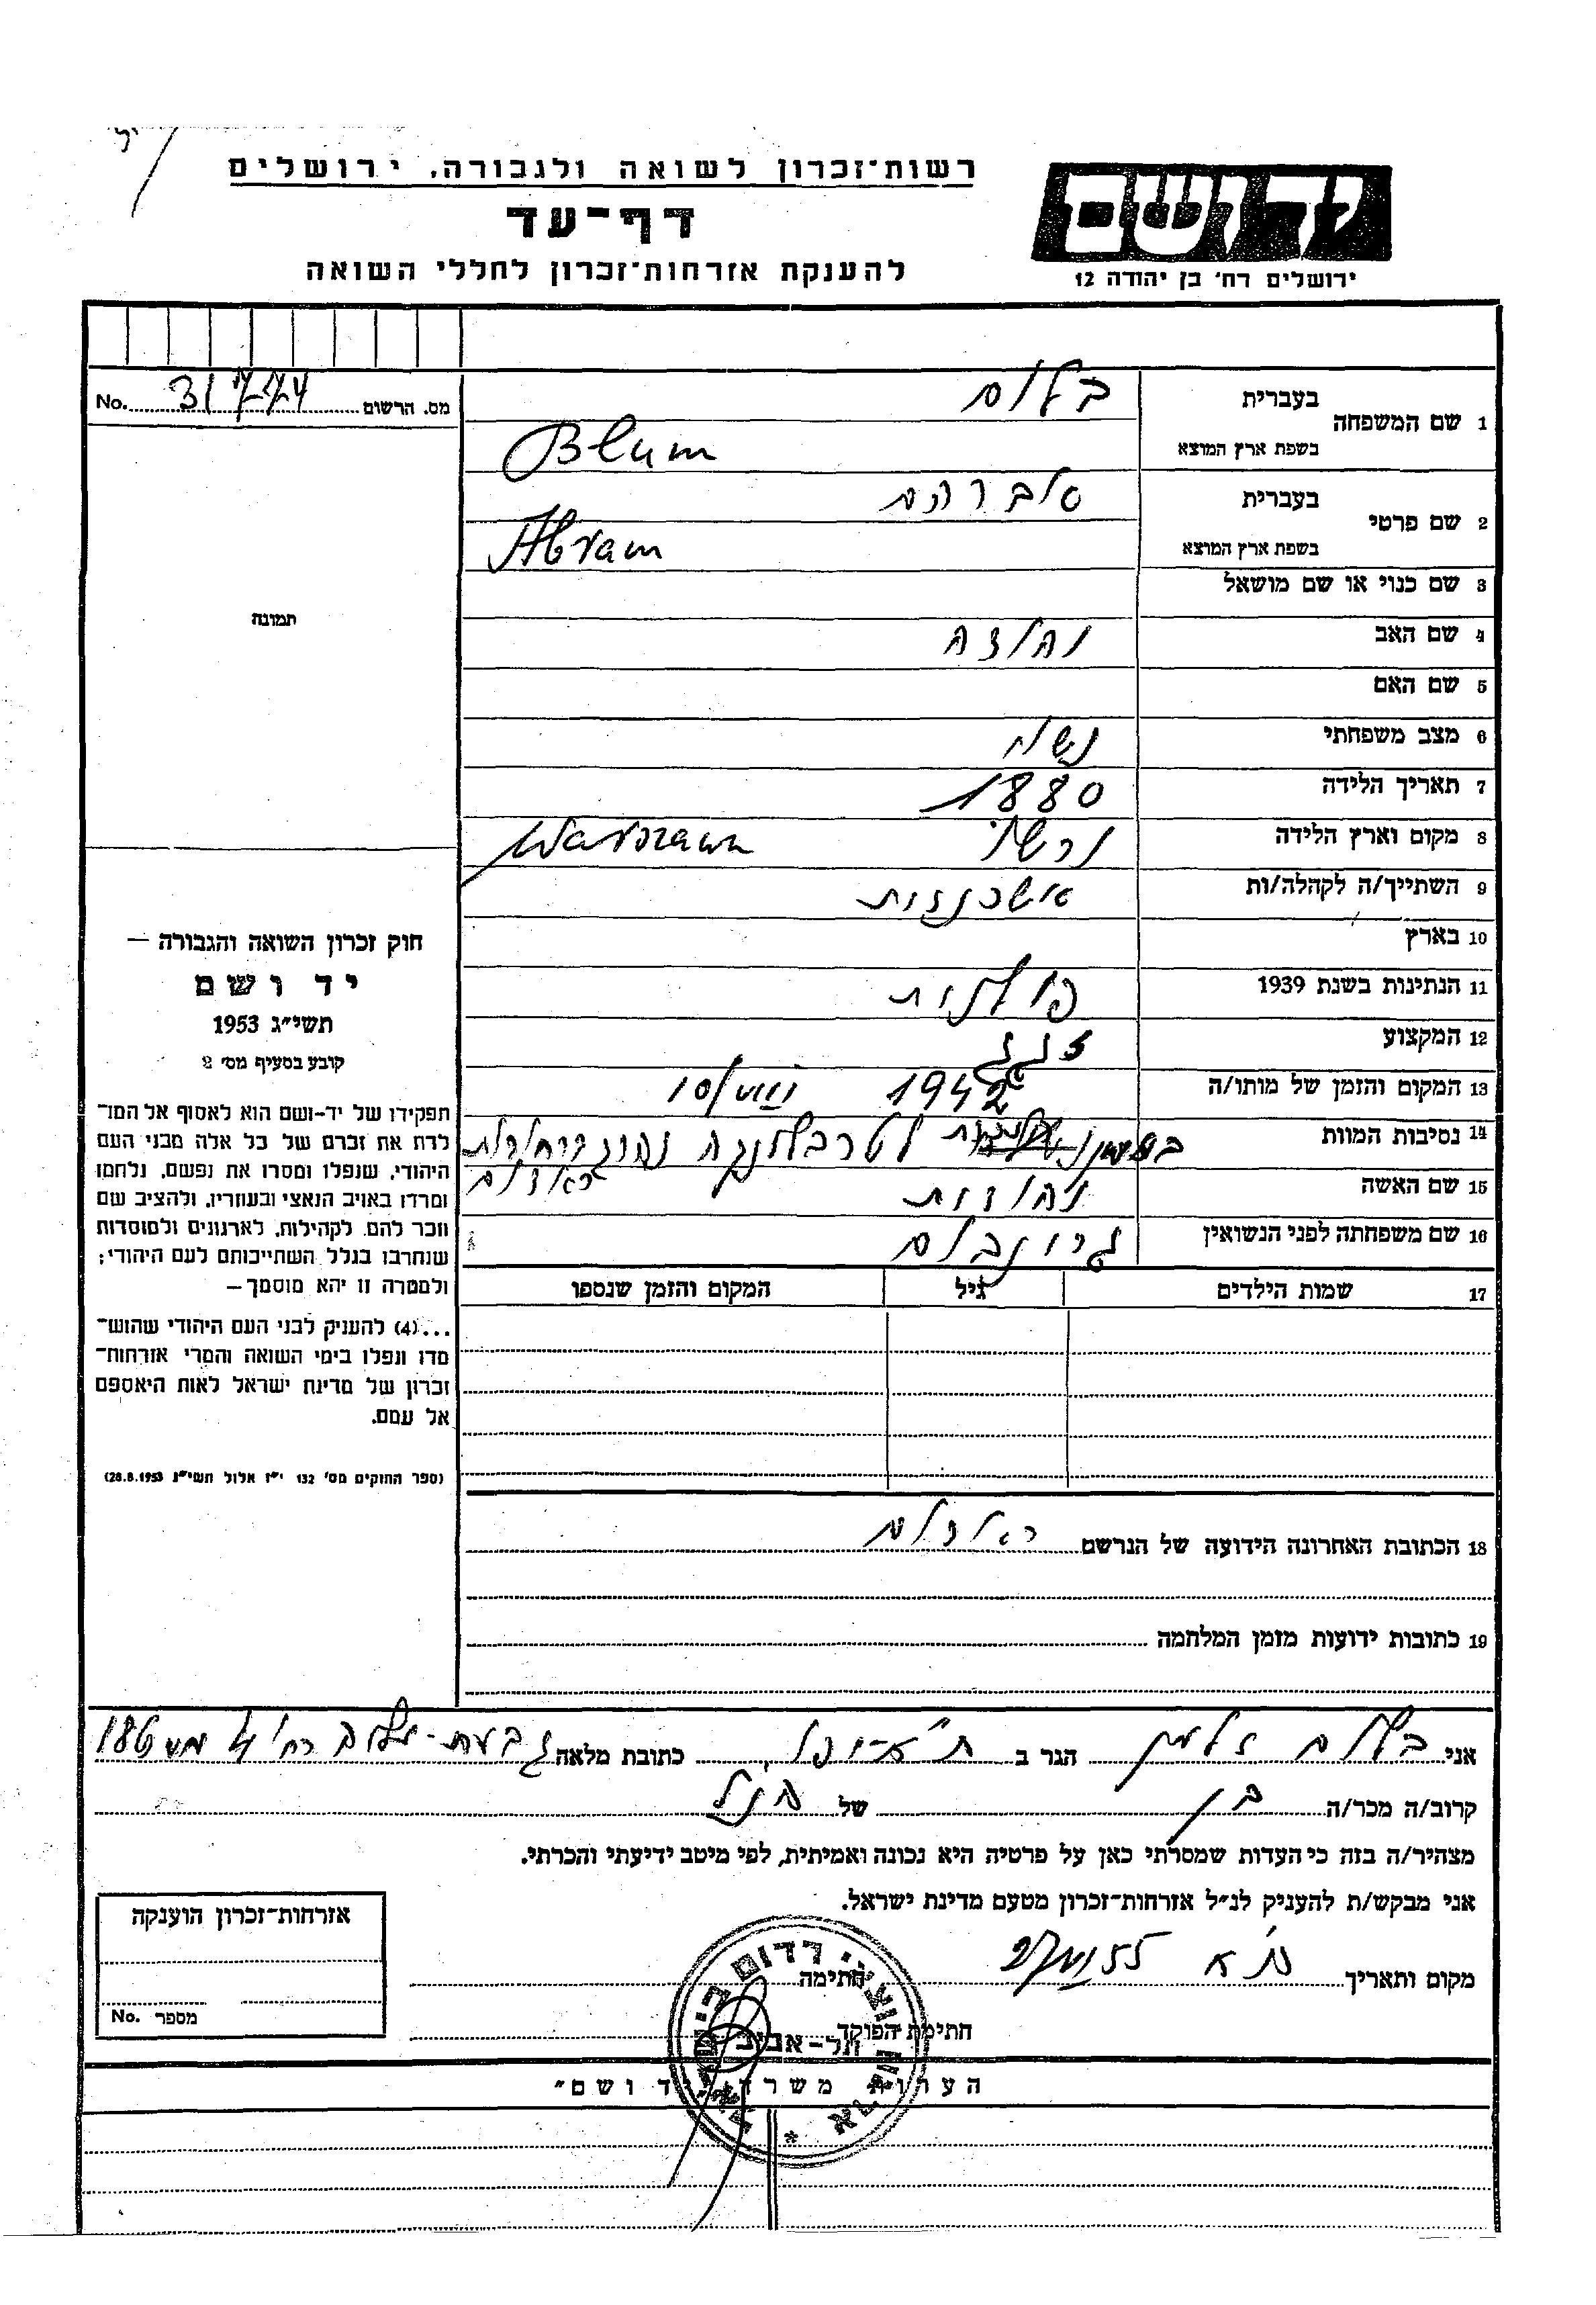 רשות־זכרון לשואה ולגבורה, ירושלים
דף־עד
להענקת אזרחות־זכרון לחללי השואה
יד ושם
ירושלים רח' בן יהודה 12
מס. הרשום No.
1 שם המשפחה
בעברית בלום
בשפת ארץ המוצא Blum
2 שם פרטי
בעברית אברהם
בשפת ארץ המוצא Abram
3 שם כנוי או שם מושאל
4 שם האב יהודה
5 שם האם
6 מצב משפחתי נשוי
7 תאריך הלידה 1880
8 מקום וארץ הלידה ורשה Warszawa
9 השתייך/ה לקהלה/ות אשכנזית
10 בארץ
11 הנתינות בשנת 1939 פולנית
12 המקצוע
13 המקום והזמן של מותו/ה 1942 10/VIII
14 נסיבות המוות לטרבלינקה
15 שם האשה יהודית
16 שם משפחתה לפני הנשואין
17 שמות הילדים גיל המקום והזמן שנספו
18 הכתובת האחרונה הידועה של הנרשם ראדום
19 כתובות ידועות מזמן המלחמה
תמונה
חוק זכרון השואה והגבורה —
יד ושם
תשי״ג 1953
קובע בסעיף מס' 2
תפקידו של יד־ושם הוא לאסוף אל המו־
לדת את זכרם של כל אלה מבני העם
היהודי, שנפלו ומסרו את נפשם, נלחמו
ומרדו באויב הנאצי ובעוזריו, ולהציב שם
וזכר להם, לקהילות, לארגונים ולמוסדות
שנחרבו בגלל השתייכותם לעם היהודי;
ולמטרה זו יהא מוסמך —
...(4) להעניק לבני העם היהודי שהוש־
מדו ונפלו בימי השואה והמרי אזרחות־
זכרון של מדינת ישראל לאות היאספם
אל עמם.
(ספר החוקים מס' 132 י״ז אלול תשי״ג 28.8.1953)
אני בלום זלמן הגר ב ת״א-יפו כתובת מלאה 186
קרוב/ה מכר/ה בן של הנ״ל
מצהיר/ה בזה כי העדות שמסרתי כאן על פרטיה היא נכונה ואמיתית, לפי מיטב ידיעתי והכרתי.
אני מבקש/ת להעניק לנ״ל אזרחות־זכרון מטעם מדינת ישראל.
מקום ותאריך ת״א חתימה
חתימת הפוקד
תל-אביב
אזרחות־זכרון הוענקה
מספר No.
הערות משרד ״יד ושם״